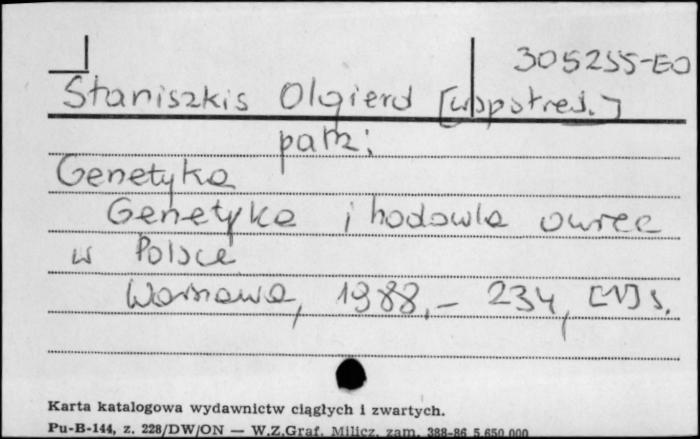 305255-EO
Staniszkis Olgierd [współred.]
patrz:
Genetyka
Genetyka i hodowla owiec
w Polsce
Warszawa, 1988, - 234, [1] s.
Karta katalogowa wydawnictw ciągłych i zwartych.
Pu-B-144, z. 228/DW/ON — W.Z.Graf. Milicz, zam. 388-86 5.650.000